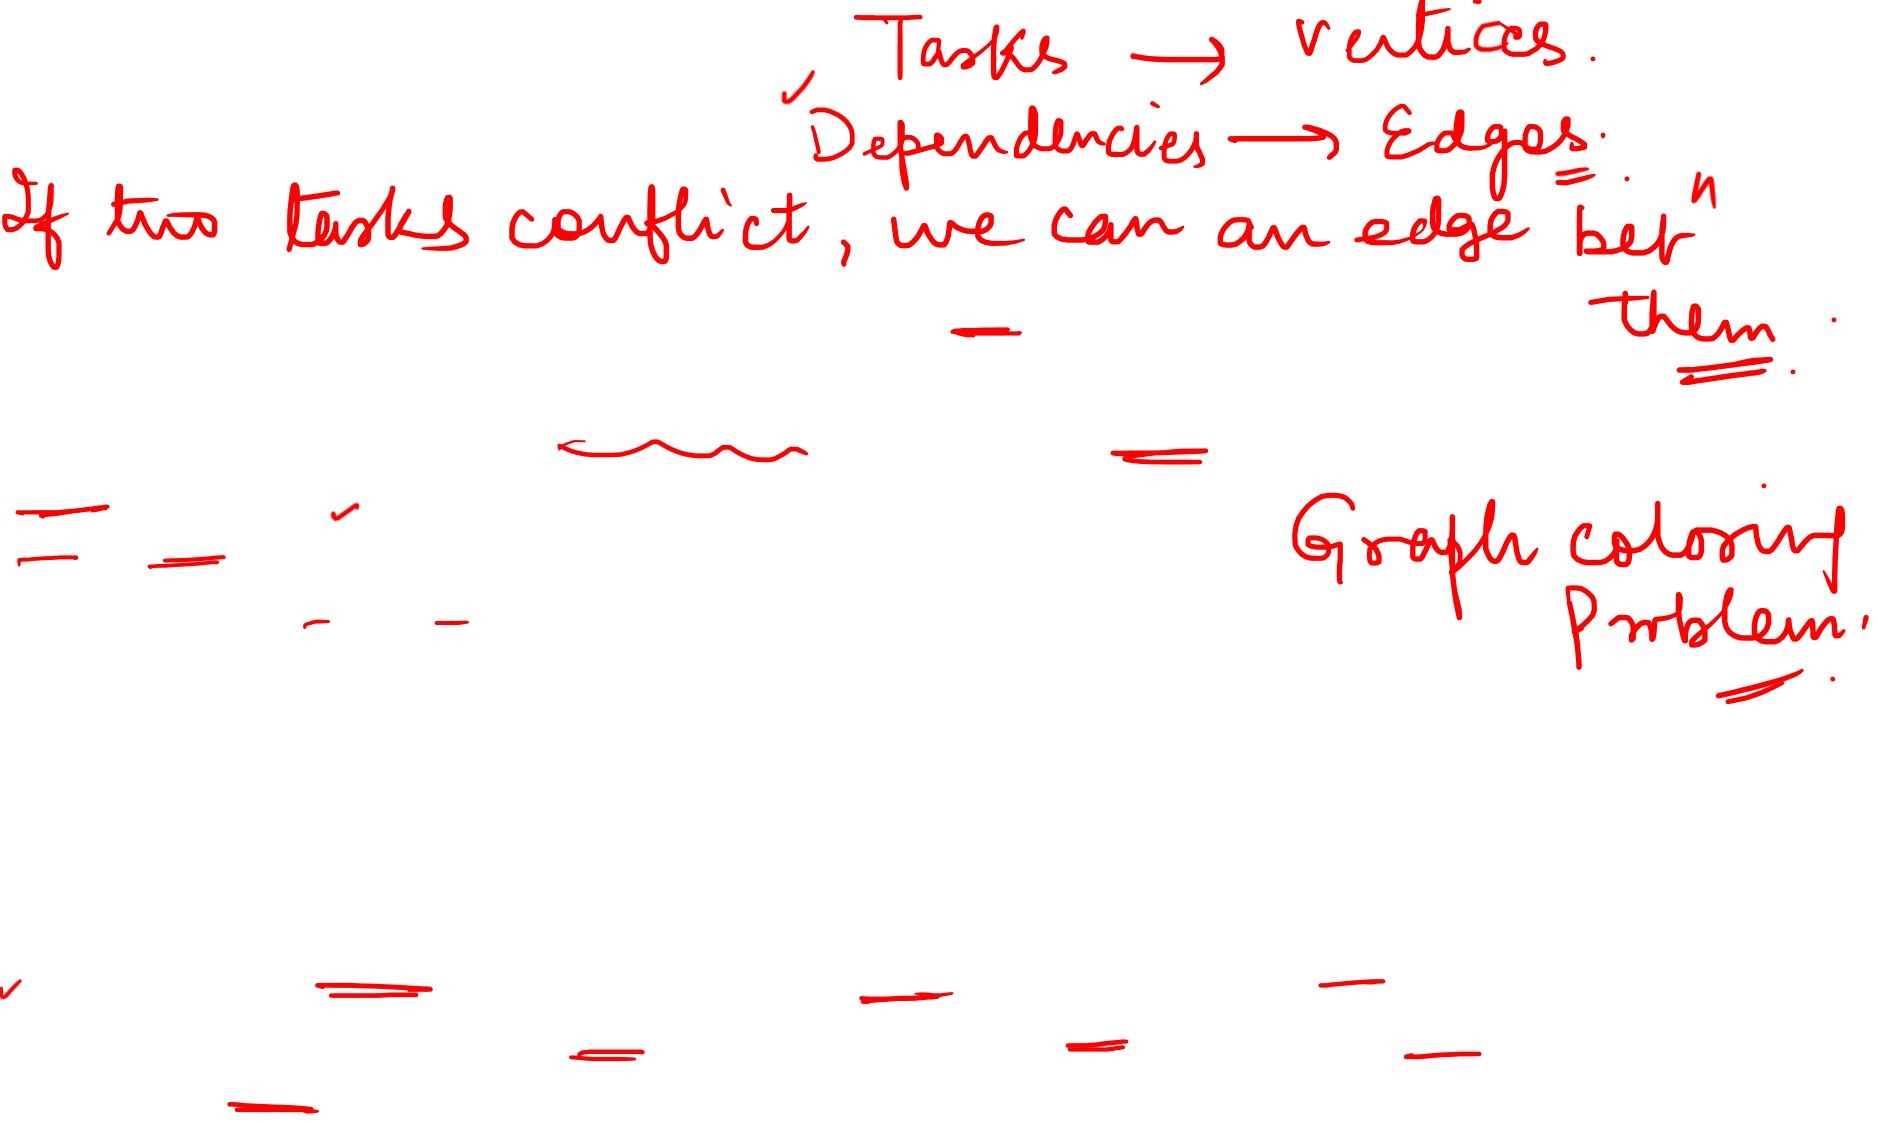 Tasks → vertices.
Dependencies → Edges.
If two tasks conflict, we can an edge betⁿ
them.
Graph coloring
Problem.